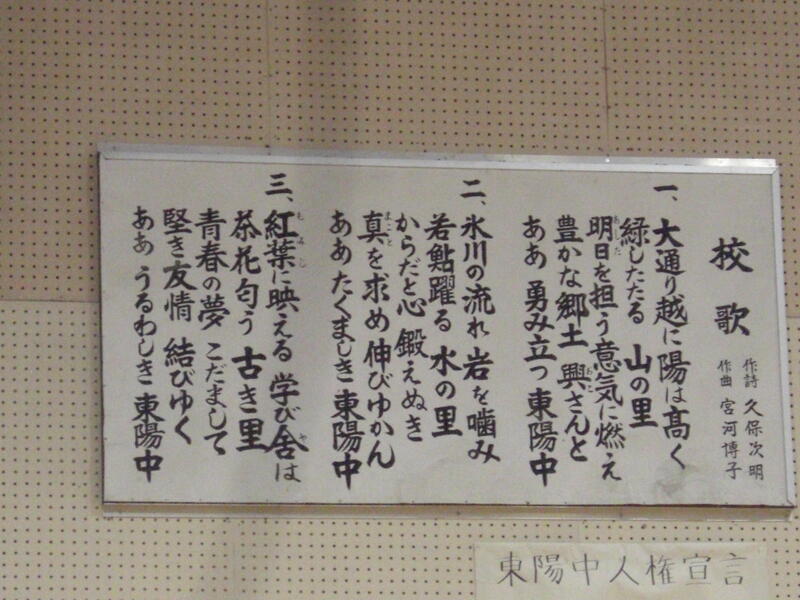 校歌
作詩 久保次明
作曲 宮河博子
一、大通り越に陽は高く
緑したたる 山の里
明日を担う意気に燃え
豊かな郷土 興さんと
ああ 勇み立つ 東陽中
二、氷川の流れ 岩を噛み
若鮎躍る 水の里
からだと心 鍛えぬき
真を求め 伸びゆかん
ああ たくましき 東陽中
三、紅葉に映える 学び舎は
茶花匂う 古き里
青春の夢 こだまして
堅き友情 結びゆく
ああ うるわしき 東陽中
東陽中人権宣言